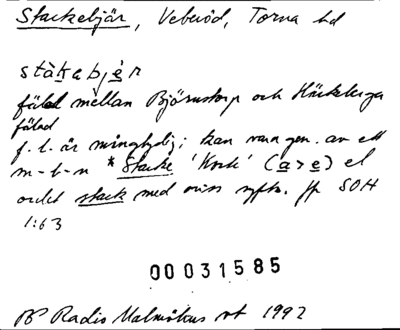 Stackebjär, Veberöd, Torna hd
stàkabjèr
fälad mellan Björnstorp och Häckeberga
fälad
f.l. är mångtydig; kan vara gen. av ett
m-b-n *Stacke 'Kort' (a>e) el
ordet stack med oviss syftn. Jfr SOH
1:63
00031585
Bo Radio Malmöhus vt 1992